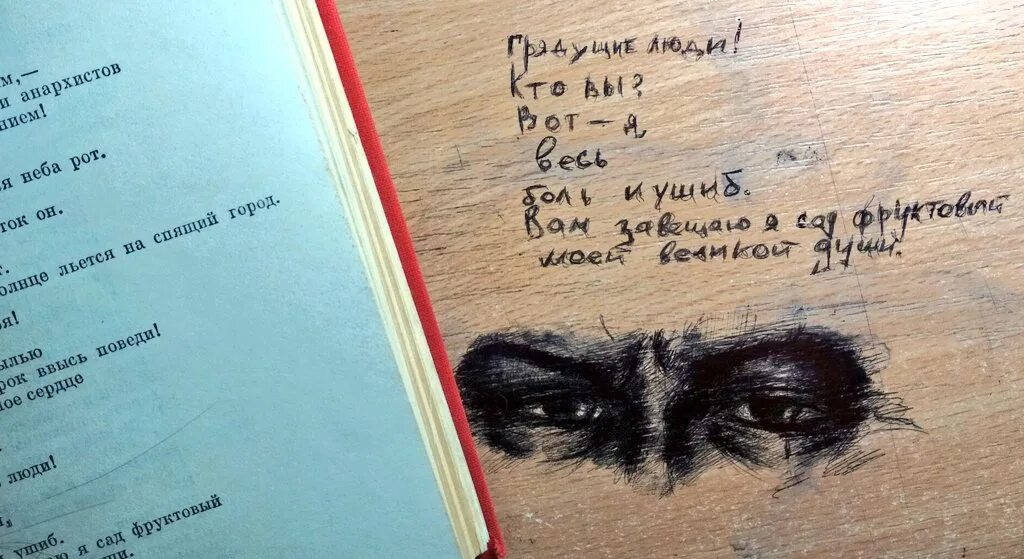 м,—
и анархистов
нием!
я неба рот.
ток он.
т.
олнце льется на спящий город.
я!
ылью
рок ввысь поведи!
ное сердце
люди!
я,
ушиб.
ю я сад фруктовый
ши.
Грядущие люди!
Кто вы?
Вот – я,
весь
боль и ушиб.
Вам завещаю я сад фруктовый
моей великой души.